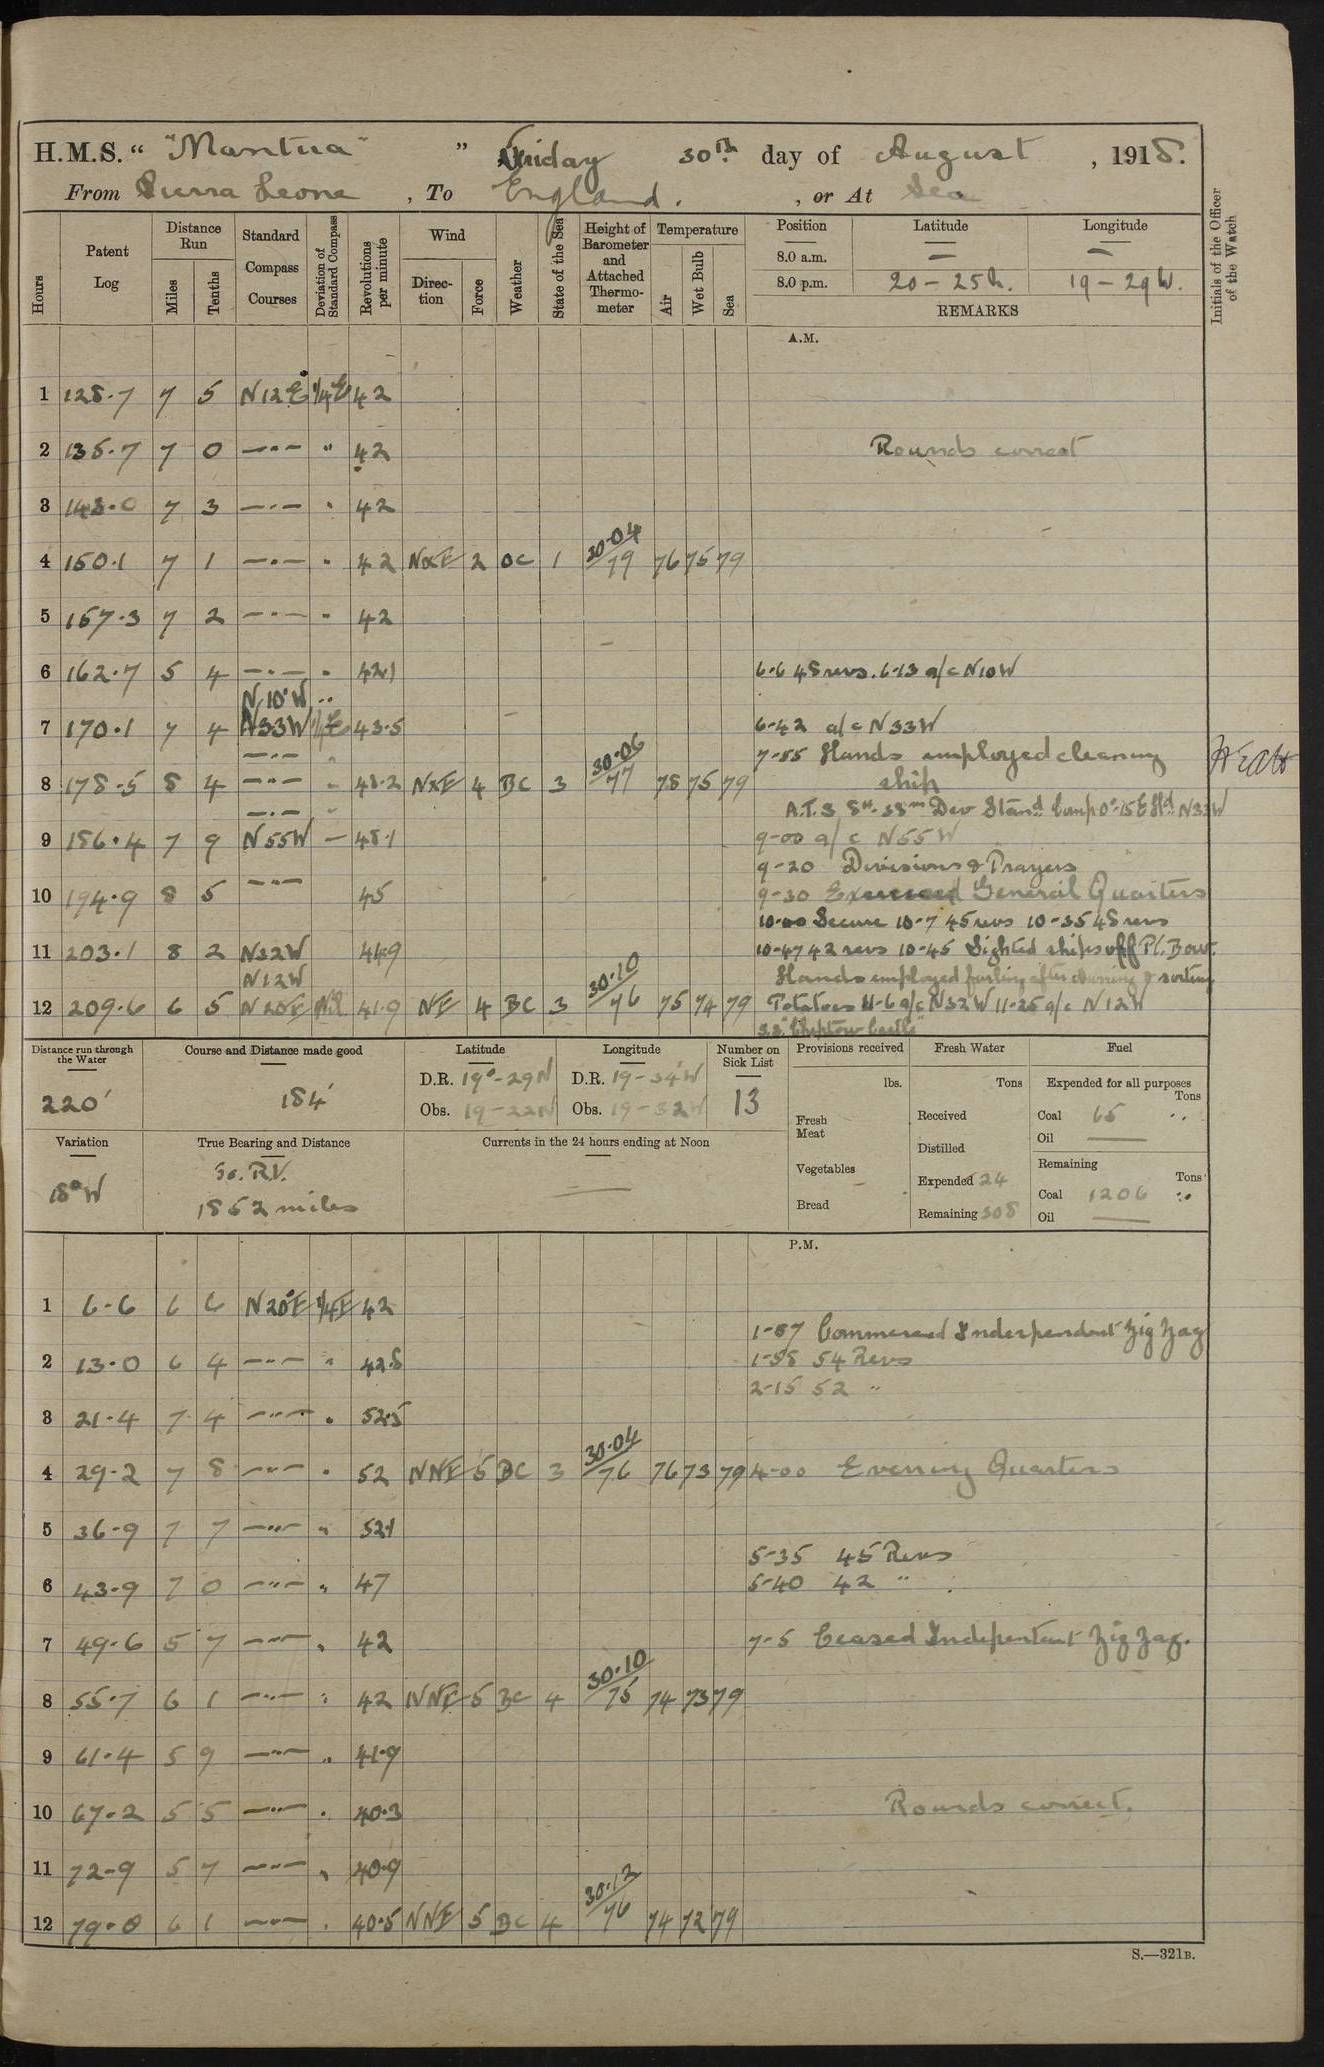 H.M.S. “ "Mantua" ” Friday 30th day of August , 1918.
From Sierra Leone , To England. , or At Sea
Hours
Patent Log
Distance Run
Miles
Tenths
Standard Compass Courses
Deviation of Standard Compass
Revolutions per minute
Wind
Direction
Force
Weather
State of the Sea
Height of Barometer and Attached Thermometer
Temperature
Air
Wet Bulb
Sea
Position
8.0 a.m. — —
8.0 p.m. 20-25N. 19-29W.
Latitude
Longitude
REMARKS
Initials of the Officer of the Watch
A.M.
1 128.7 7 5 N12E 1/4E 42
2 135.7 7 0 —"— " 42 Rounds correct
3 143.0 7 3 —"— " 42
4 150.1 7 1 —"— " 42 NxE 2 OC 1 30.04/79 76 75 79
5 157.3 7 2 —"— " 42
6 162.7 5 4 —"— " 42.1 6-6 48 revs. 6-13 a/c N10W
N10°W "
7 170.1 7 4 N33W 43.5 6-42 a/c N33W
—"— 7-55 Hands employed cleaning
8 178.5 8 4 —"— " 48.2 NxE 4 BC 3 30.06/77 78 75 79 ship
A.T.S 8H. 38m Dev Stand Comp 0°-15E Shd N33W
9 186.4 7 9 N55W — 48.1 9-00 a/c N55W
9-20 Divisions & Prayers
10 194.9 8 5 —"— 45 9-30 Exercised General Quarters
10-00 Secure 10-7 45 revs 10-35 48 revs
11 203.1 8 2 N32W 44.9 10-47 42 revs 10-45 Sighted ships off Pt. Bow.
N12W Hands employed & sorting
12 209.6 6 5 N20E 41.9 NE 4 BC 3 30.10/76 75 74 79 Potatoes 11-6 a/c N32W 11-25 a/c N12W
S.S. "Chepstow Castle"
Distance run through the Water
220'
Course and Distance made good
184'
Latitude
D.R. 19°-29N
Obs. 19-22N
Longitude
D.R. 19-34'W
Obs. 19-32W
Number on Sick List
13
Provisions received
lbs.
Fresh Meat
Vegetables
Bread
Fresh Water
Tons
Received
Distilled
Expended 24
Remaining 308
Fuel
Expended for all purposes
Tons
Coal 65
Oil —
Remaining
Tons
Coal 1206
Oil —
Variation
18°W
True Bearing and Distance
To. R.V.
1852 miles
Currents in the 24 hours ending at Noon
P.M.
1 6-6 6 6 N20°E 1/4E 42
1-57 Commenced Independent Zig Zag
2 13.0 6 4 —"— " 42.8 1-58 54 Revs
2-15 52 "
3 21-4 7 4 —"— " 52.5
4 29-2 7 8 —"— " 52 NNE 5 BC 3 30.04/76 76 73 79 4-00 Evening Quarters
5 36-9 7 7 —"— " 52.1
5-35 45 Revs
6 43-9 7 0 —"— " 47 5-40 42 "
7 49-6 5 7 —"— " 42 7-5 Ceased Independent Zig Zag.
8 55.7 6 1 —"— " 42 NNE 5 BC 4 30.10/75 74 73 79
9 61.4 5 9 —"— " 41.9
10 67.2 5 5 —"— " 40.3 Rounds correct.
11 72-9 5 7 —"— " 40.9
12 79.0 6 1 —"— " 40.5 NNE 5 BC 4 30.12/76 74 72 79
S.—321B.